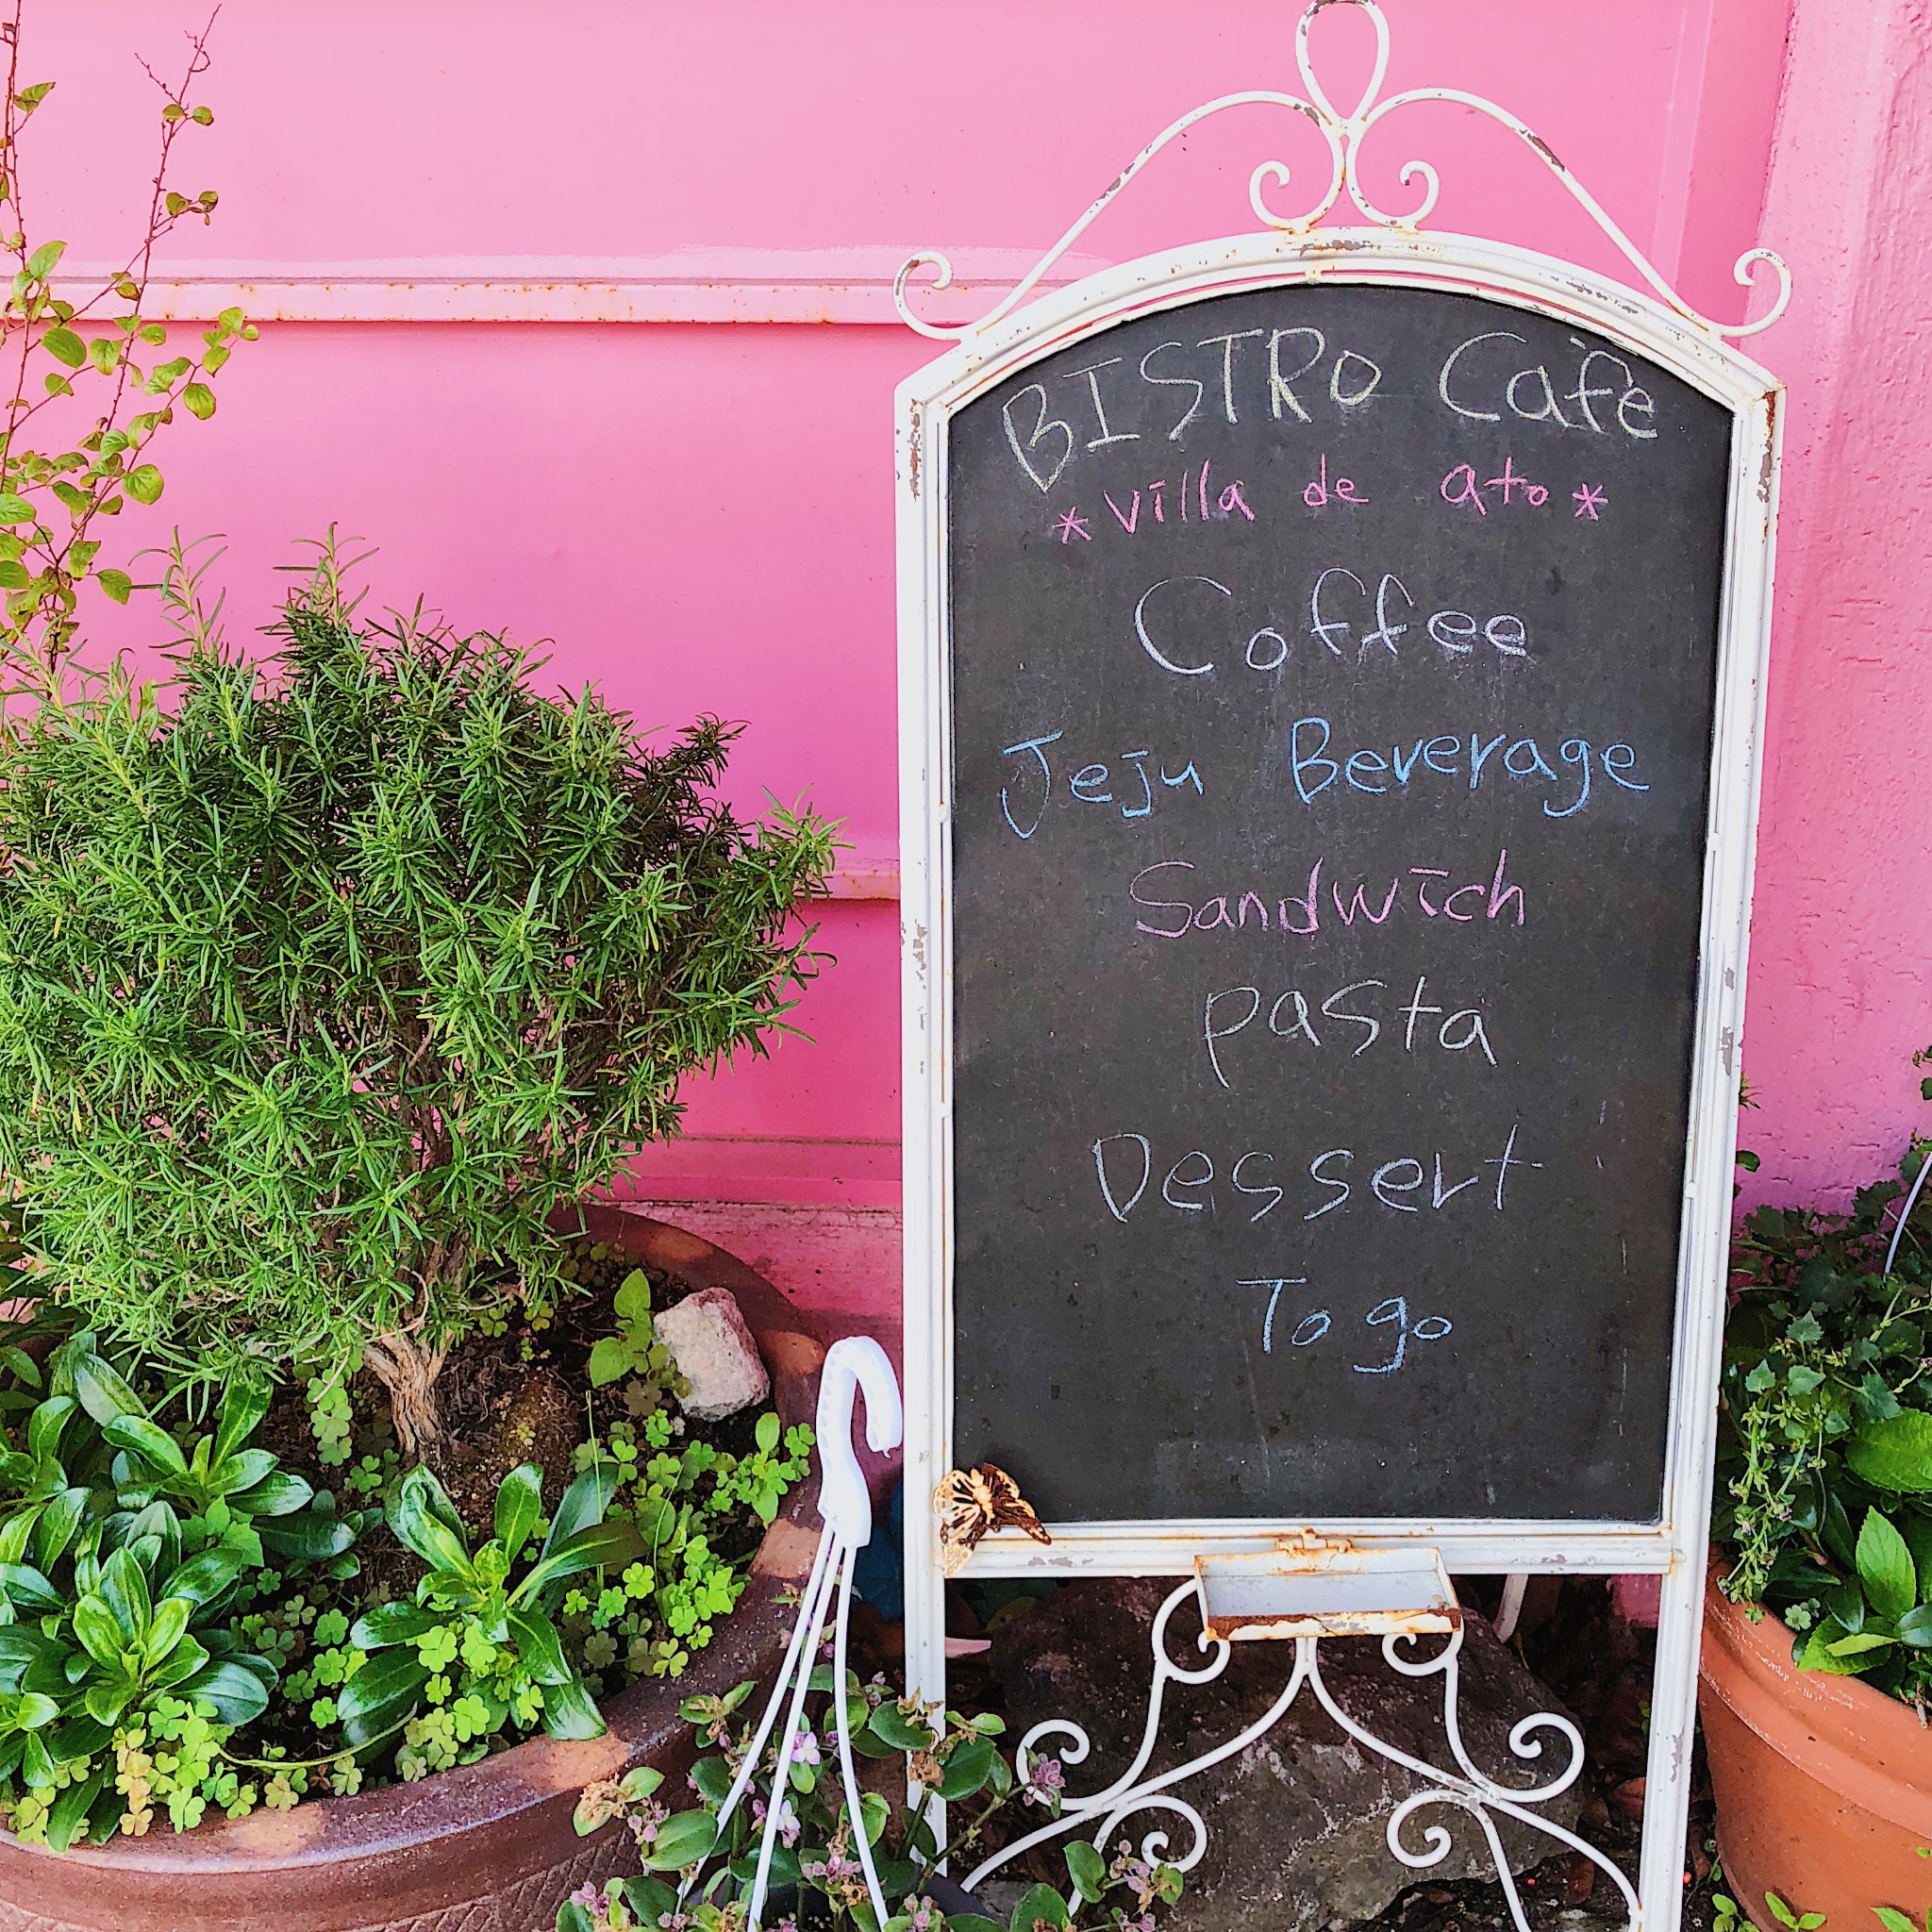 BISTRO Cafe
*villa de ato*
Coffee
Jeju Beverage
Sandwich
pasta
Dessert
To go